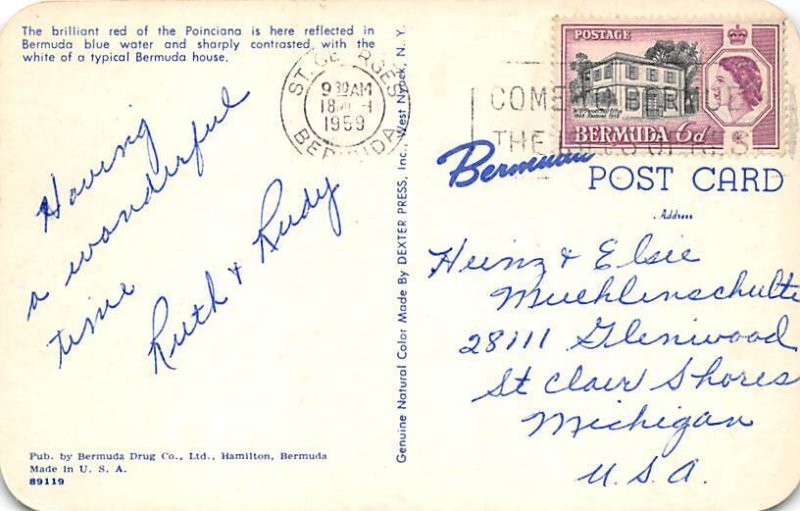 The brilliant red of the Poinciana is here reflected in
Bermuda blue water and sharply contrasted with the
white of a typical Bermuda house.
Having
a wonderful
time
Ruth & Rudy
Pub. by Bermuda Drug Co., Ltd., Hamilton, Bermuda
Made in U. S. A.
89119
Genuine Natural Color Made By DEXTER PRESS, Inc., West Nyack, N. Y.
ST. GEORGES
9 30 AM
18
1959
BERMUDA
POSTAGE
BERMUDA 6d
COME TO BERMUDA
THE ISLES OF
Bermuda
POST CARD
Address
Heinz & Elsie
Muehlenschulte
28111 Glenwood
St Clair Shores
Michigan
U.S.A.